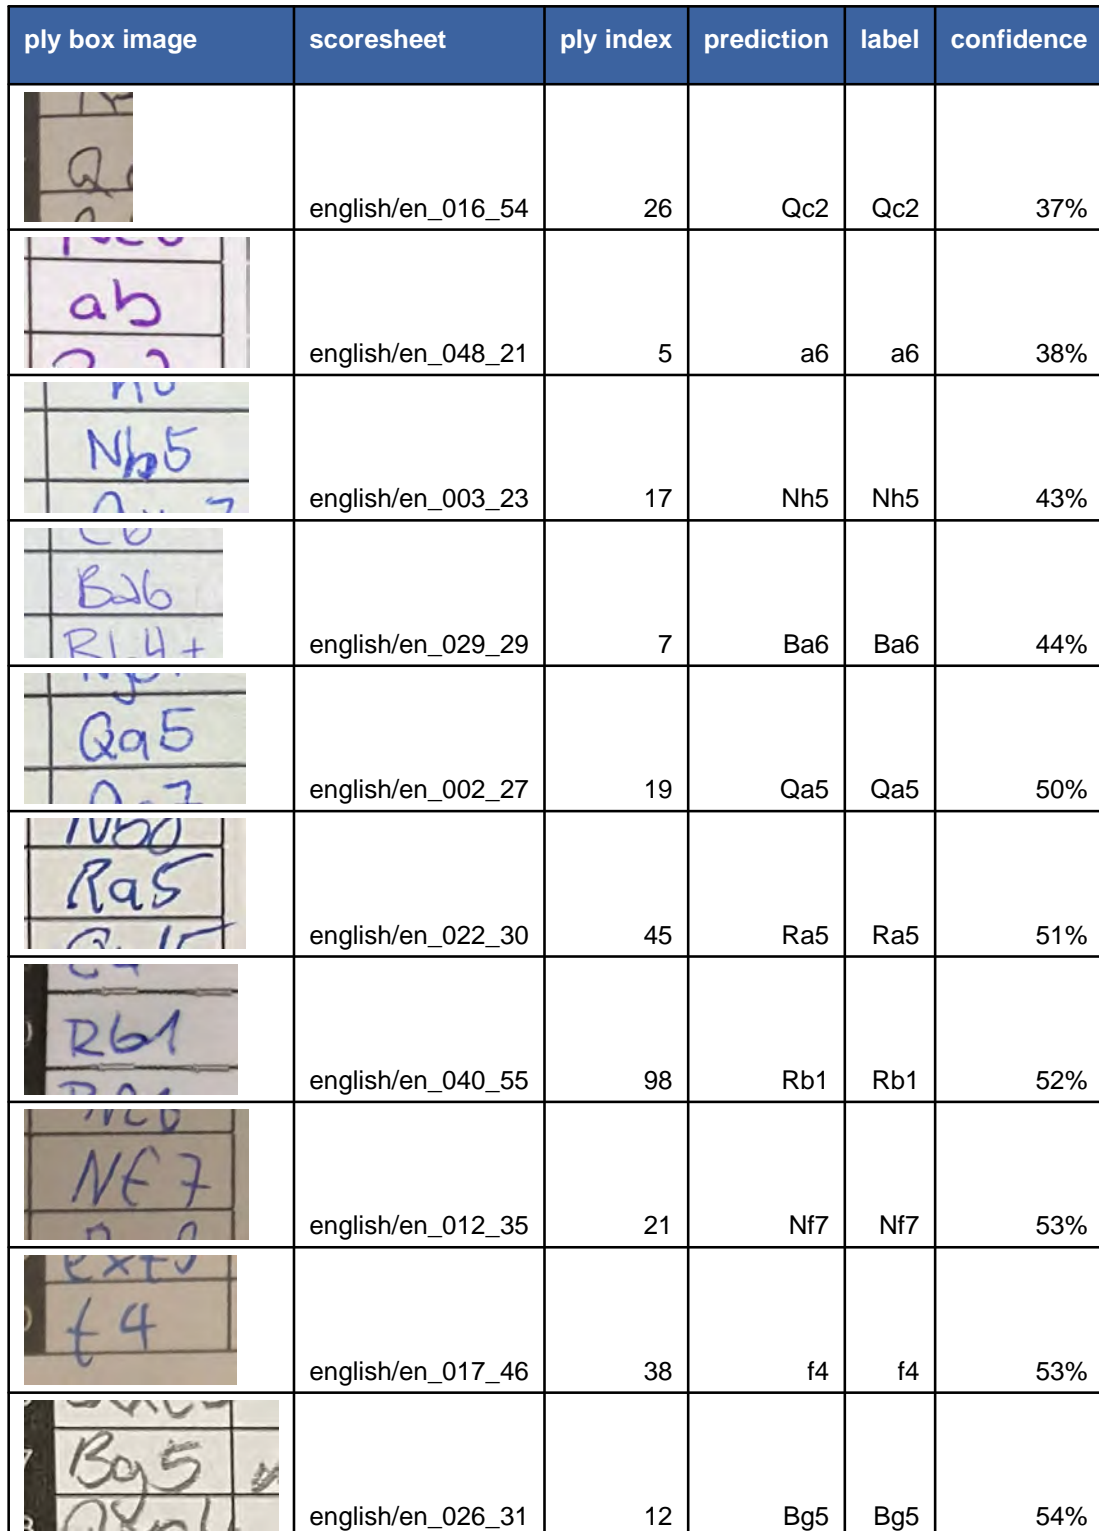 ply box image scoresheet ply index prediction label confidence
Q
english/en_016_54 26 Qc2 Qc2 37%
ab
english/en_048_21 5 a6 a6 38%
Nb5
english/en_003_23 17 Nh5 Nh5 43%
Ba6
Rb4+
english/en_029_29 7 Ba6 Ba6 44%
Qa5
english/en_002_27 19 Qa5 Qa5 50%
Ra5
english/en_022_30 45 Ra5 Ra5 51%
Rb1
english/en_040_55 98 Rb1 Rb1 52%
Nf7
english/en_012_35 21 Nf7 Nf7 53%
f4
english/en_017_46 38 f4 f4 53%
Bg5
english/en_026_31 12 Bg5 Bg5 54%